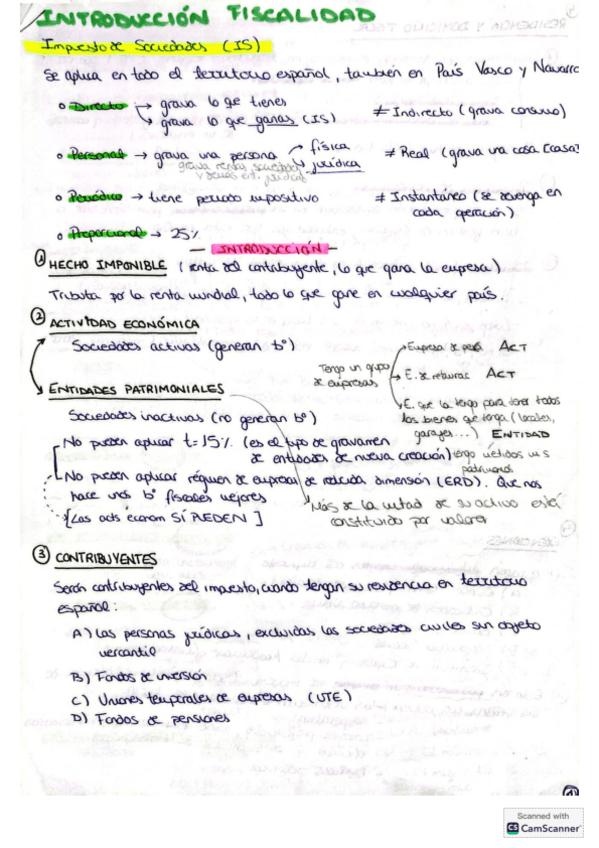 INTRODUCCIÓN FISCALIDAD
Impuesto de Sociedades (IS)
Se aplica en todo el territorio español, también en País Vasco y Navarra
o Directo → grava lo que tienes
↳ grava lo que ganas (IS)
≠ Indirecto (grava consumo)
o Personal → grava una persona → física
↳ jurídica
grava rentas sociedades
y demás ent. jurídicas
≠ Real (grava una cosa [casa]
o Periódico → tiene periodo impositivo
≠ Instantáneo (se devenga en
cada operación)
o Proporcional → 25%
— INTRODUCCIÓN —
① HECHO IMPONIBLE (renta del contribuyente, lo que gana la empresa)
Tributa por la renta mundial, todo lo que gane en cualquier país.
② ACTIVIDAD ECONÓMICA
Sociedades activas (generan bº)
ENTIDADES PATRIMONIALES
Sociedades inactivas (no generan bº)
Tengo un grupo
de empresas
Empresa de ACT
E. de ACT
E. que la tengo para tener todos
los bienes que tenga (locales,
garajes...) ENTIDAD
tengo metidos mis
patrimonios
- No pueden aplicar t=15% (es el tipo de gravamen
de entidades de nueva creación)
- No pueden aplicar régimen de empresas de reducida dimensión (ERD). Que nos
hace unos bº fiscales mejores
[Las acts econom SÍ PUEDEN]
Más de la mitad de su activo está
constituido por valores
③ CONTRIBUYENTES
Serán contribuyentes del impuesto, cuando tengan su residencia en territorio
español:
A) Las personas jurídicas, excluidas las sociedades civiles sin objeto
mercantil
B) Fondos de inversión
C) Uniones temporales de empresas (UTE)
D) Fondos de pensiones
①
Scanned with
CS CamScanner